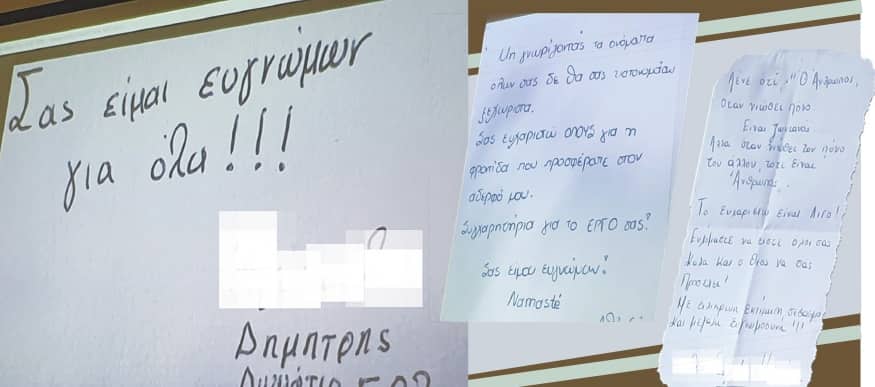 Σας είμαι ευγνώμων
για όλα!!!
Δημητρης
Μη γνωρίζοντας τα ονόματα
όλων σας δε θα σας
ξεχωριστα.
Σας ευχαριστώ όλους για τη
φροντίδα που προσφέρατε στον
αδερφό μου.
Συγχαρητήρια για το ΕΡΓΟ σας!
Σας είμαι ευγνώμων!
Namasté
Λένε οτι "Ο Άνθρωπος,
Οταν νιώθει πονο
Ειναι Ζωντανός
Αλλα οταν νιωθει τον πόνο
του άλλου, τοτε Ειναι
Άνθρωπος.
Το Ευχαριστω Είναι Λιγο!
Ευχόμαστε να ειστε ολοι σας
Καλα και ο Θεος να σας
Προσεχει!
Με εκτίμηση σεβασμο
Και μεγαλη Ευγνωμοσύνη!!!